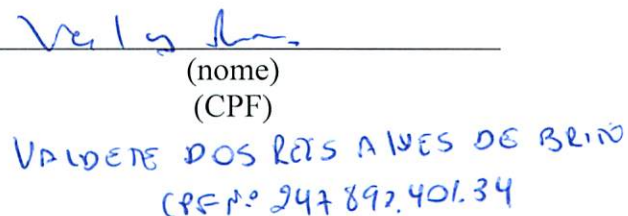 (nome)
(CPF)
VALDETE DOS REIS ALVES DE BRITO
CPF Nº 247.892.401.34